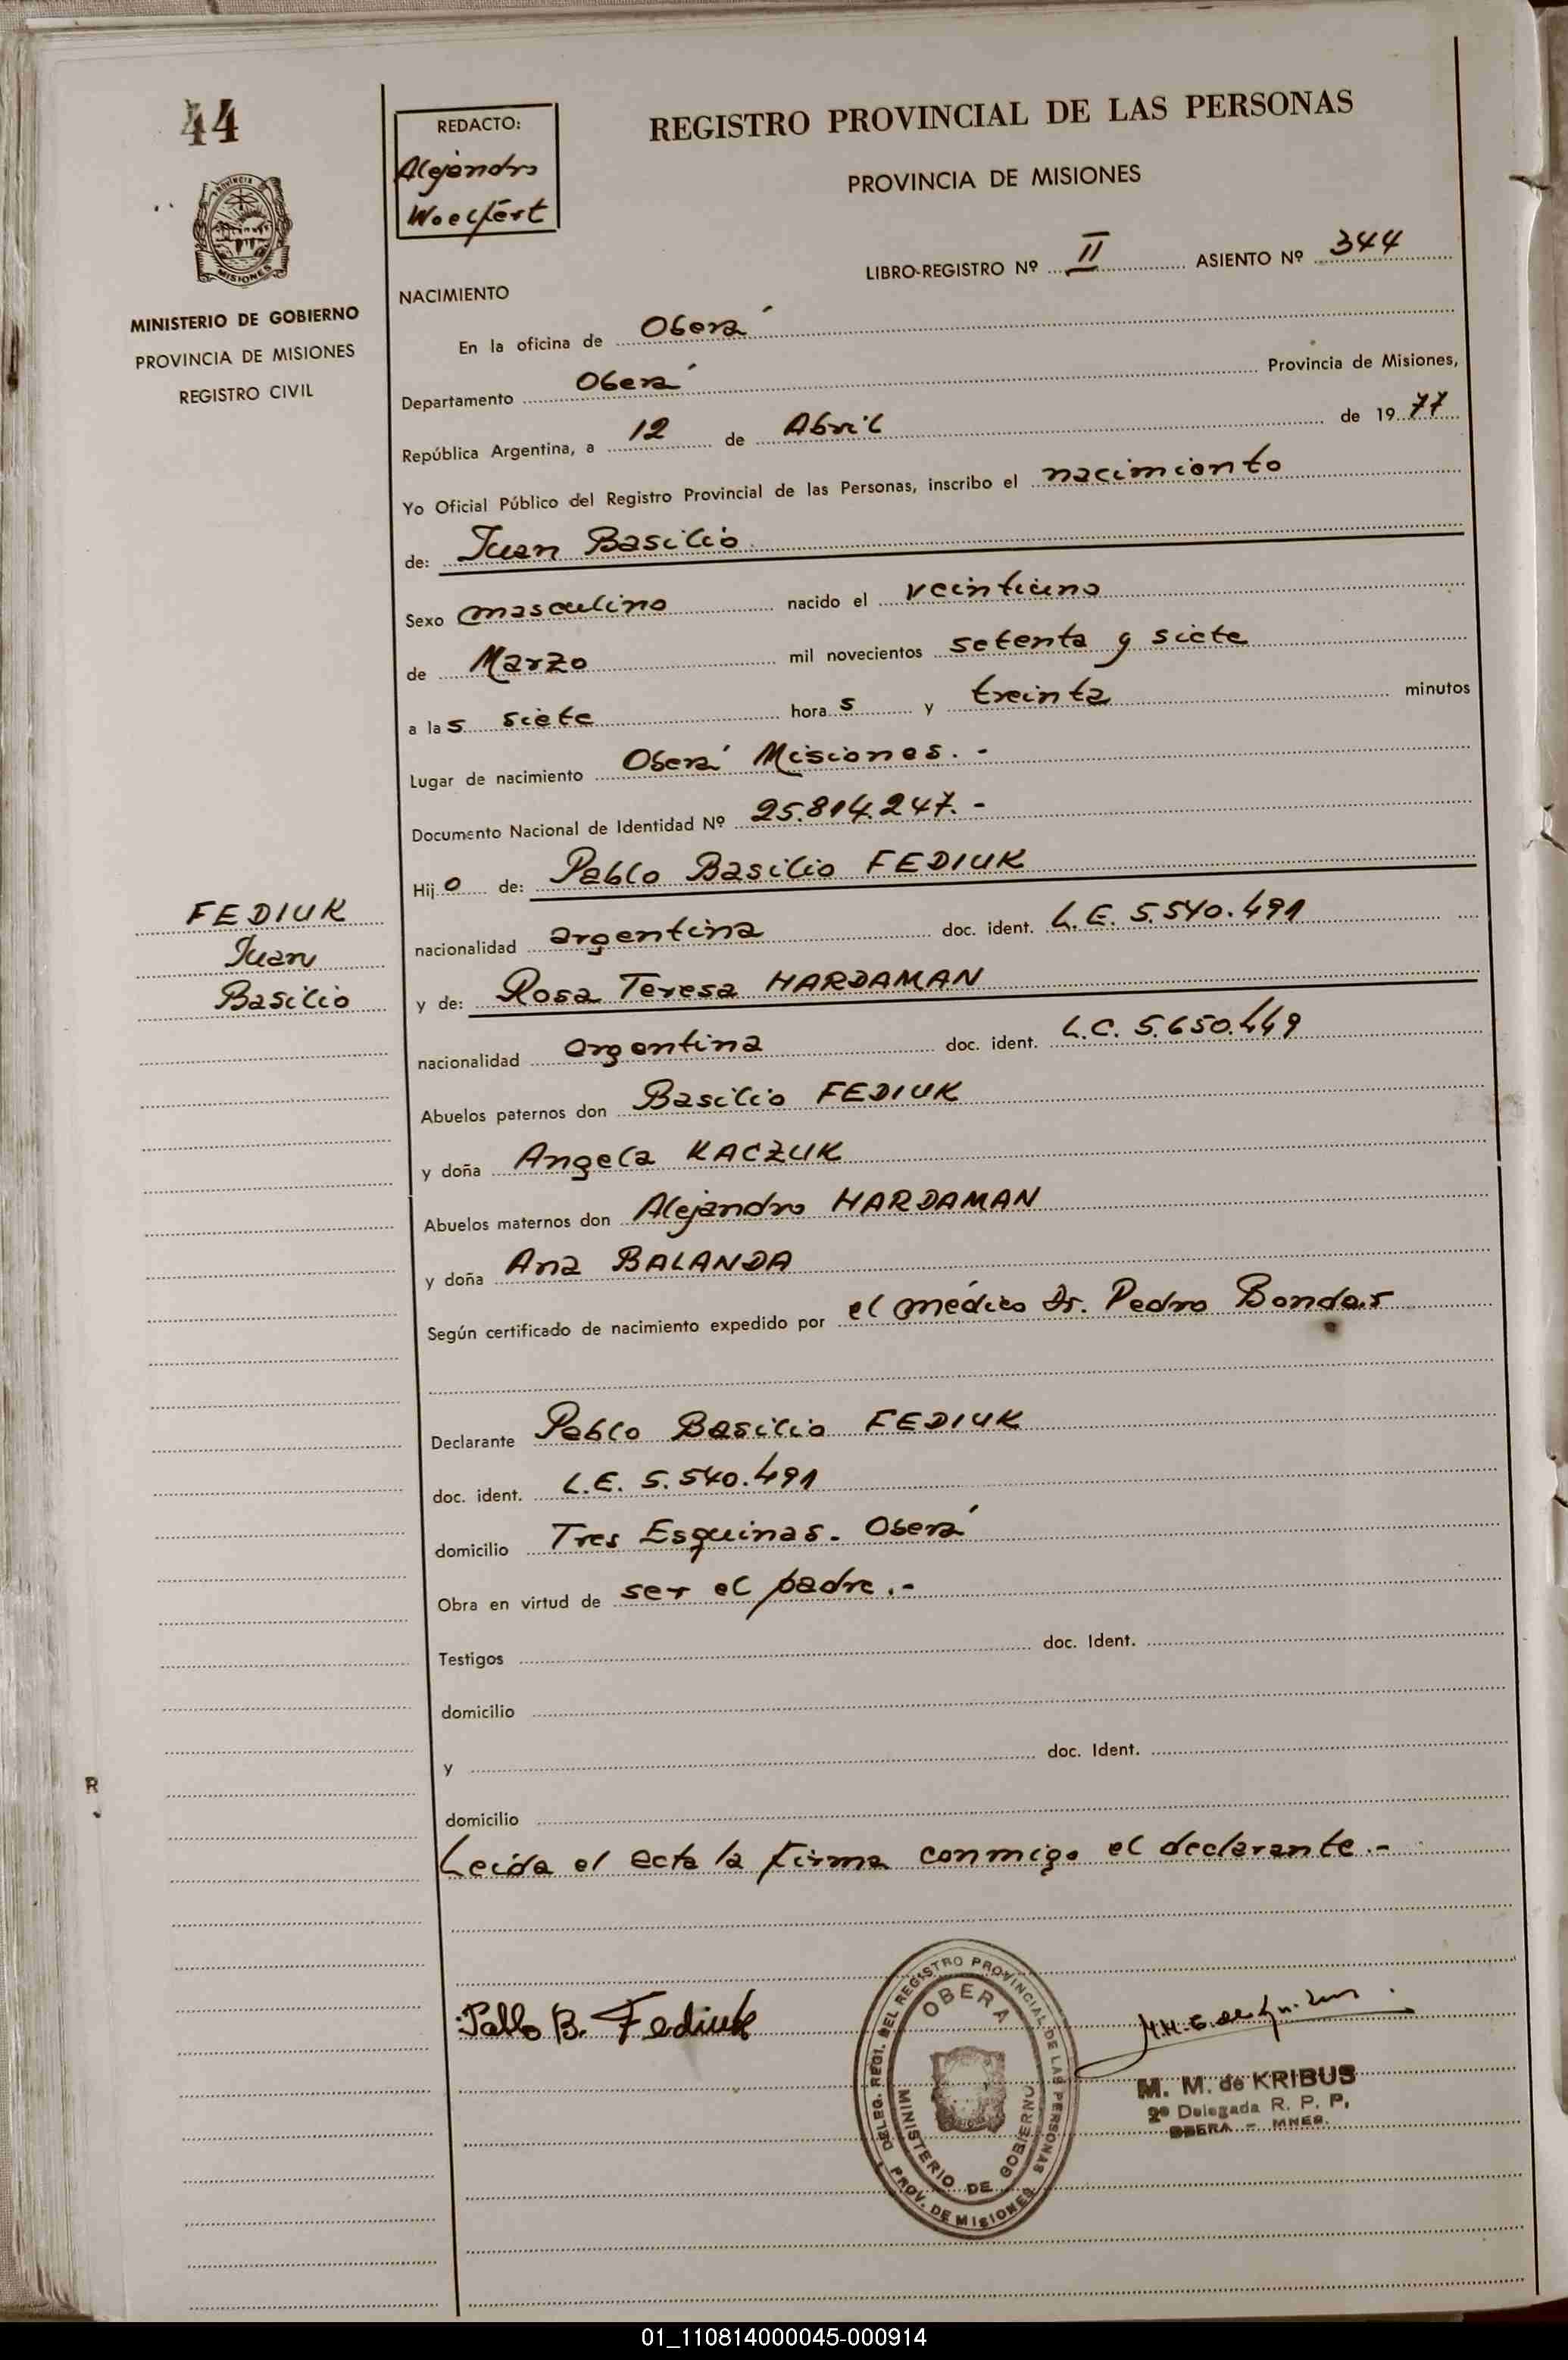 44
REDACTO:
Alejandro
Woelfert
REGISTRO PROVINCIAL DE LAS PERSONAS
PROVINCIA DE MISIONES
LIBRO-REGISTRO Nº II ASIENTO Nº 344
MISIONES
MINISTERIO DE GOBIERNO
PROVINCIA DE MISIONES
REGISTRO CIVIL
NACIMIENTO
En la oficina de Oberá
Departamento Oberá Provincia de Misiones,
República Argentina, a 12 de Abril de 1977
Yo Oficial Público del Registro Provincial de las Personas, inscribo el nacimiento
de: Juan Basilio
Sexo masculino nacido el veintiuno
de Marzo mil novecientos setenta y siete
a las siete horas y treinta minutos
Lugar de nacimiento Oberá Misiones.-
Documento Nacional de Identidad Nº 25.814.247.-
Hijo de: Pablo Basilio FEDIUK
FEDIUK
Juan
Basilio
nacionalidad argentina doc. ident. L.E. 5.540.491
y de: Rosa Teresa HARDAMAN
nacionalidad argentina doc. ident. L.C. 5.650.449
Abuelos paternos don Basilio FEDIUK
y doña Angela KACZUK
Abuelos maternos don Alejandro HARDAMAN
y doña Ana BALANDA
Según certificado de nacimiento expedido por el médico Dr. Pedro Bondar
Declarante Pablo Basilio FEDIUK
doc. ident. L.E. 5.540.491
domicilio Tres Esquinas. Oberá
Obra en virtud de ser el padre.-
Testigos doc. Ident.
domicilio
y doc. Ident.
R
domicilio
Leída el acta la firma conmigo el declarante.-
Pablo B. Fediuk
DELEG. REGI. DEL REGISTRO PROVINCIAL DE LAS PERSONAS
OBERA
MINISTERIO DE GOBIERNO
PROV. DE MISIONES
M. M. de KRIBUS
2º Delegada R. P. P.
OBERA - MNES.
01_110814000045-000914